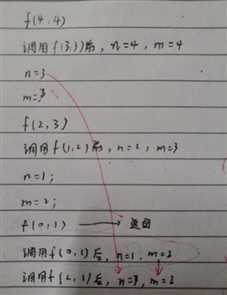 f(4,4)
调用f(3,3)后, n=4, m=4
n=3
m=3
f(2,3)
调用f(1,2)后, n=2, m=3
n=1;
m=2;
f(0,1) → 返回
调用f(0,1)后, n=1, m=2
调用f(2,3)后, n=3, m=3